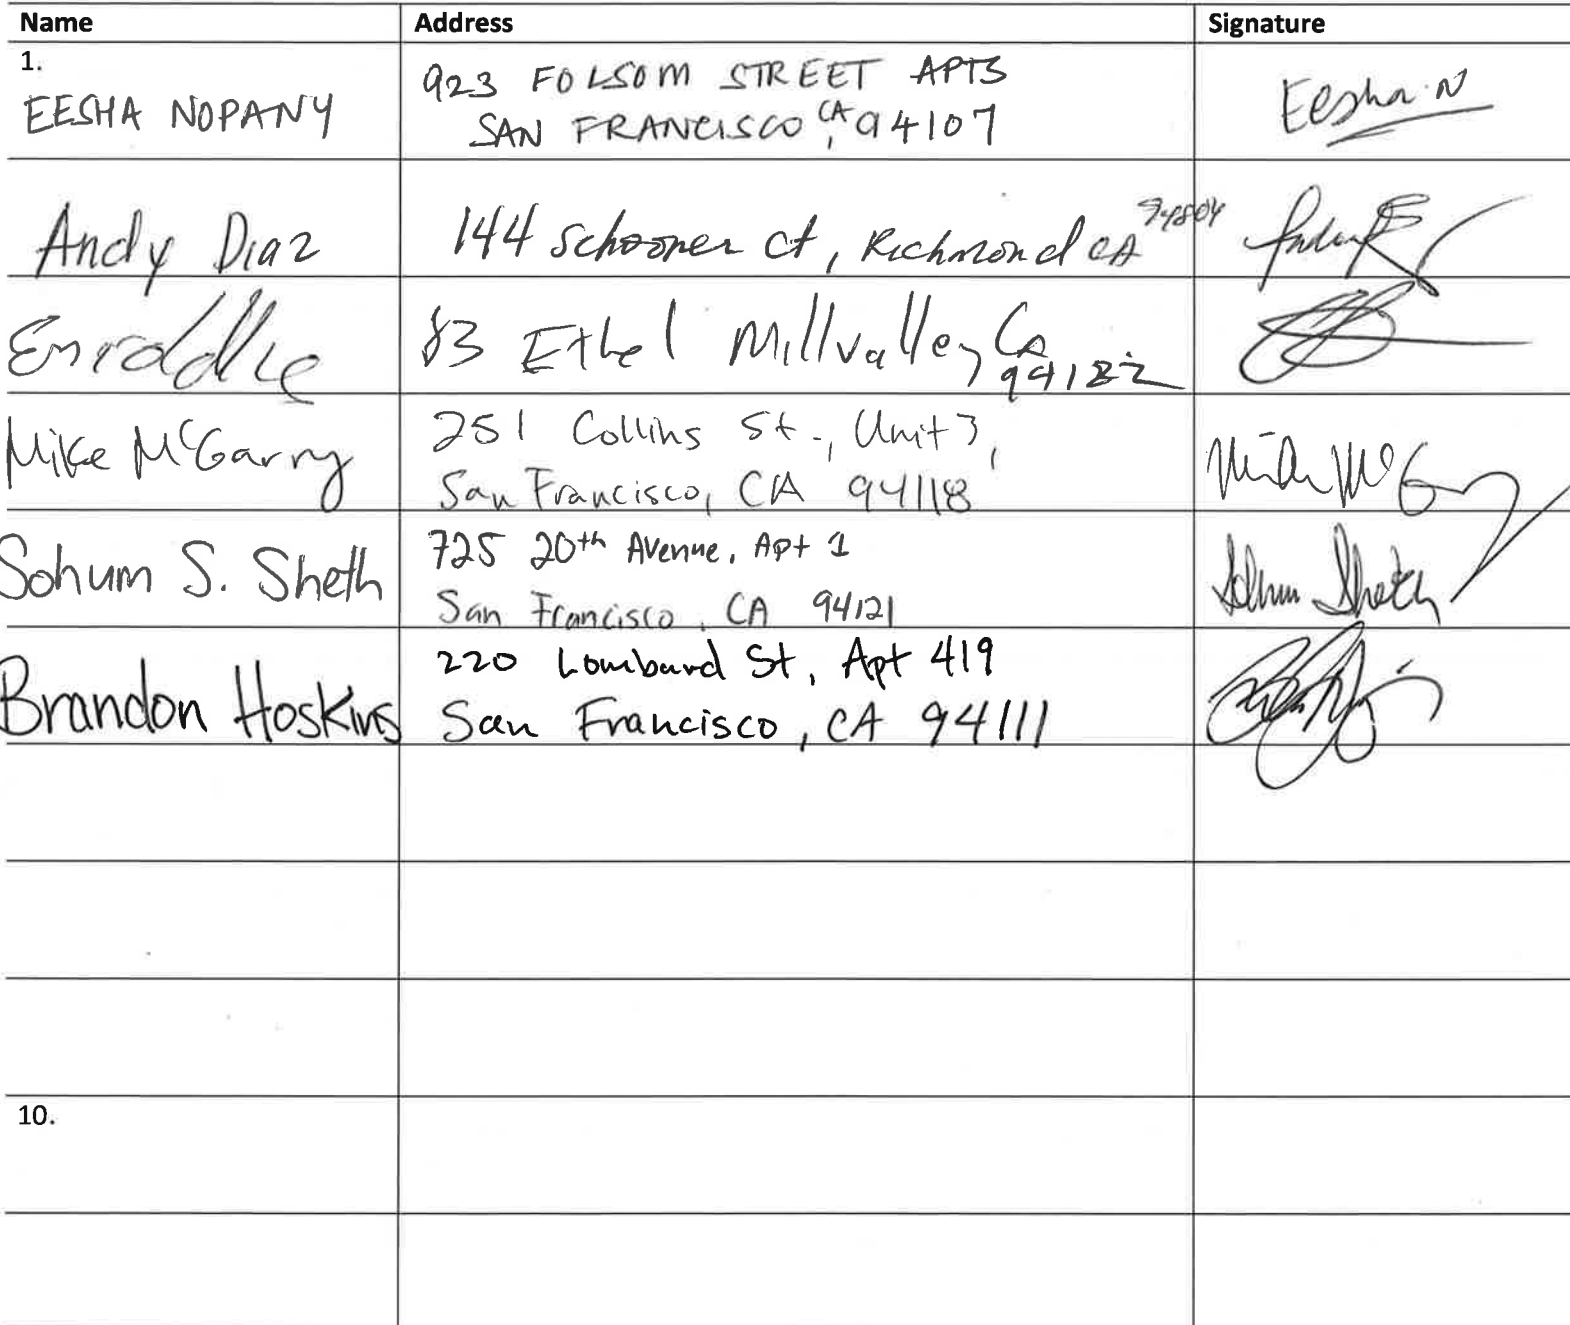 Name Address Signature
1.
EESHA NOPANY
923 FOLSOM STREET APT3
SAN FRANCISCO, CA 94107
Eesha N
Andy Diaz
144 Schooner ct, Richmond CA 94804
83 Ethel Millvalley Ca
Mike McGarry
251 Collins St., Unit 3,
San Francisco, CA 94118
Mike McG
Sohum S. Sheth
725 20th Avenue, Apt 1
San Francisco, CA 94121
Sohum Sheth
Brandon Hoskins
220 Lombard St, Apt 419
San Francisco, CA 94111
10.